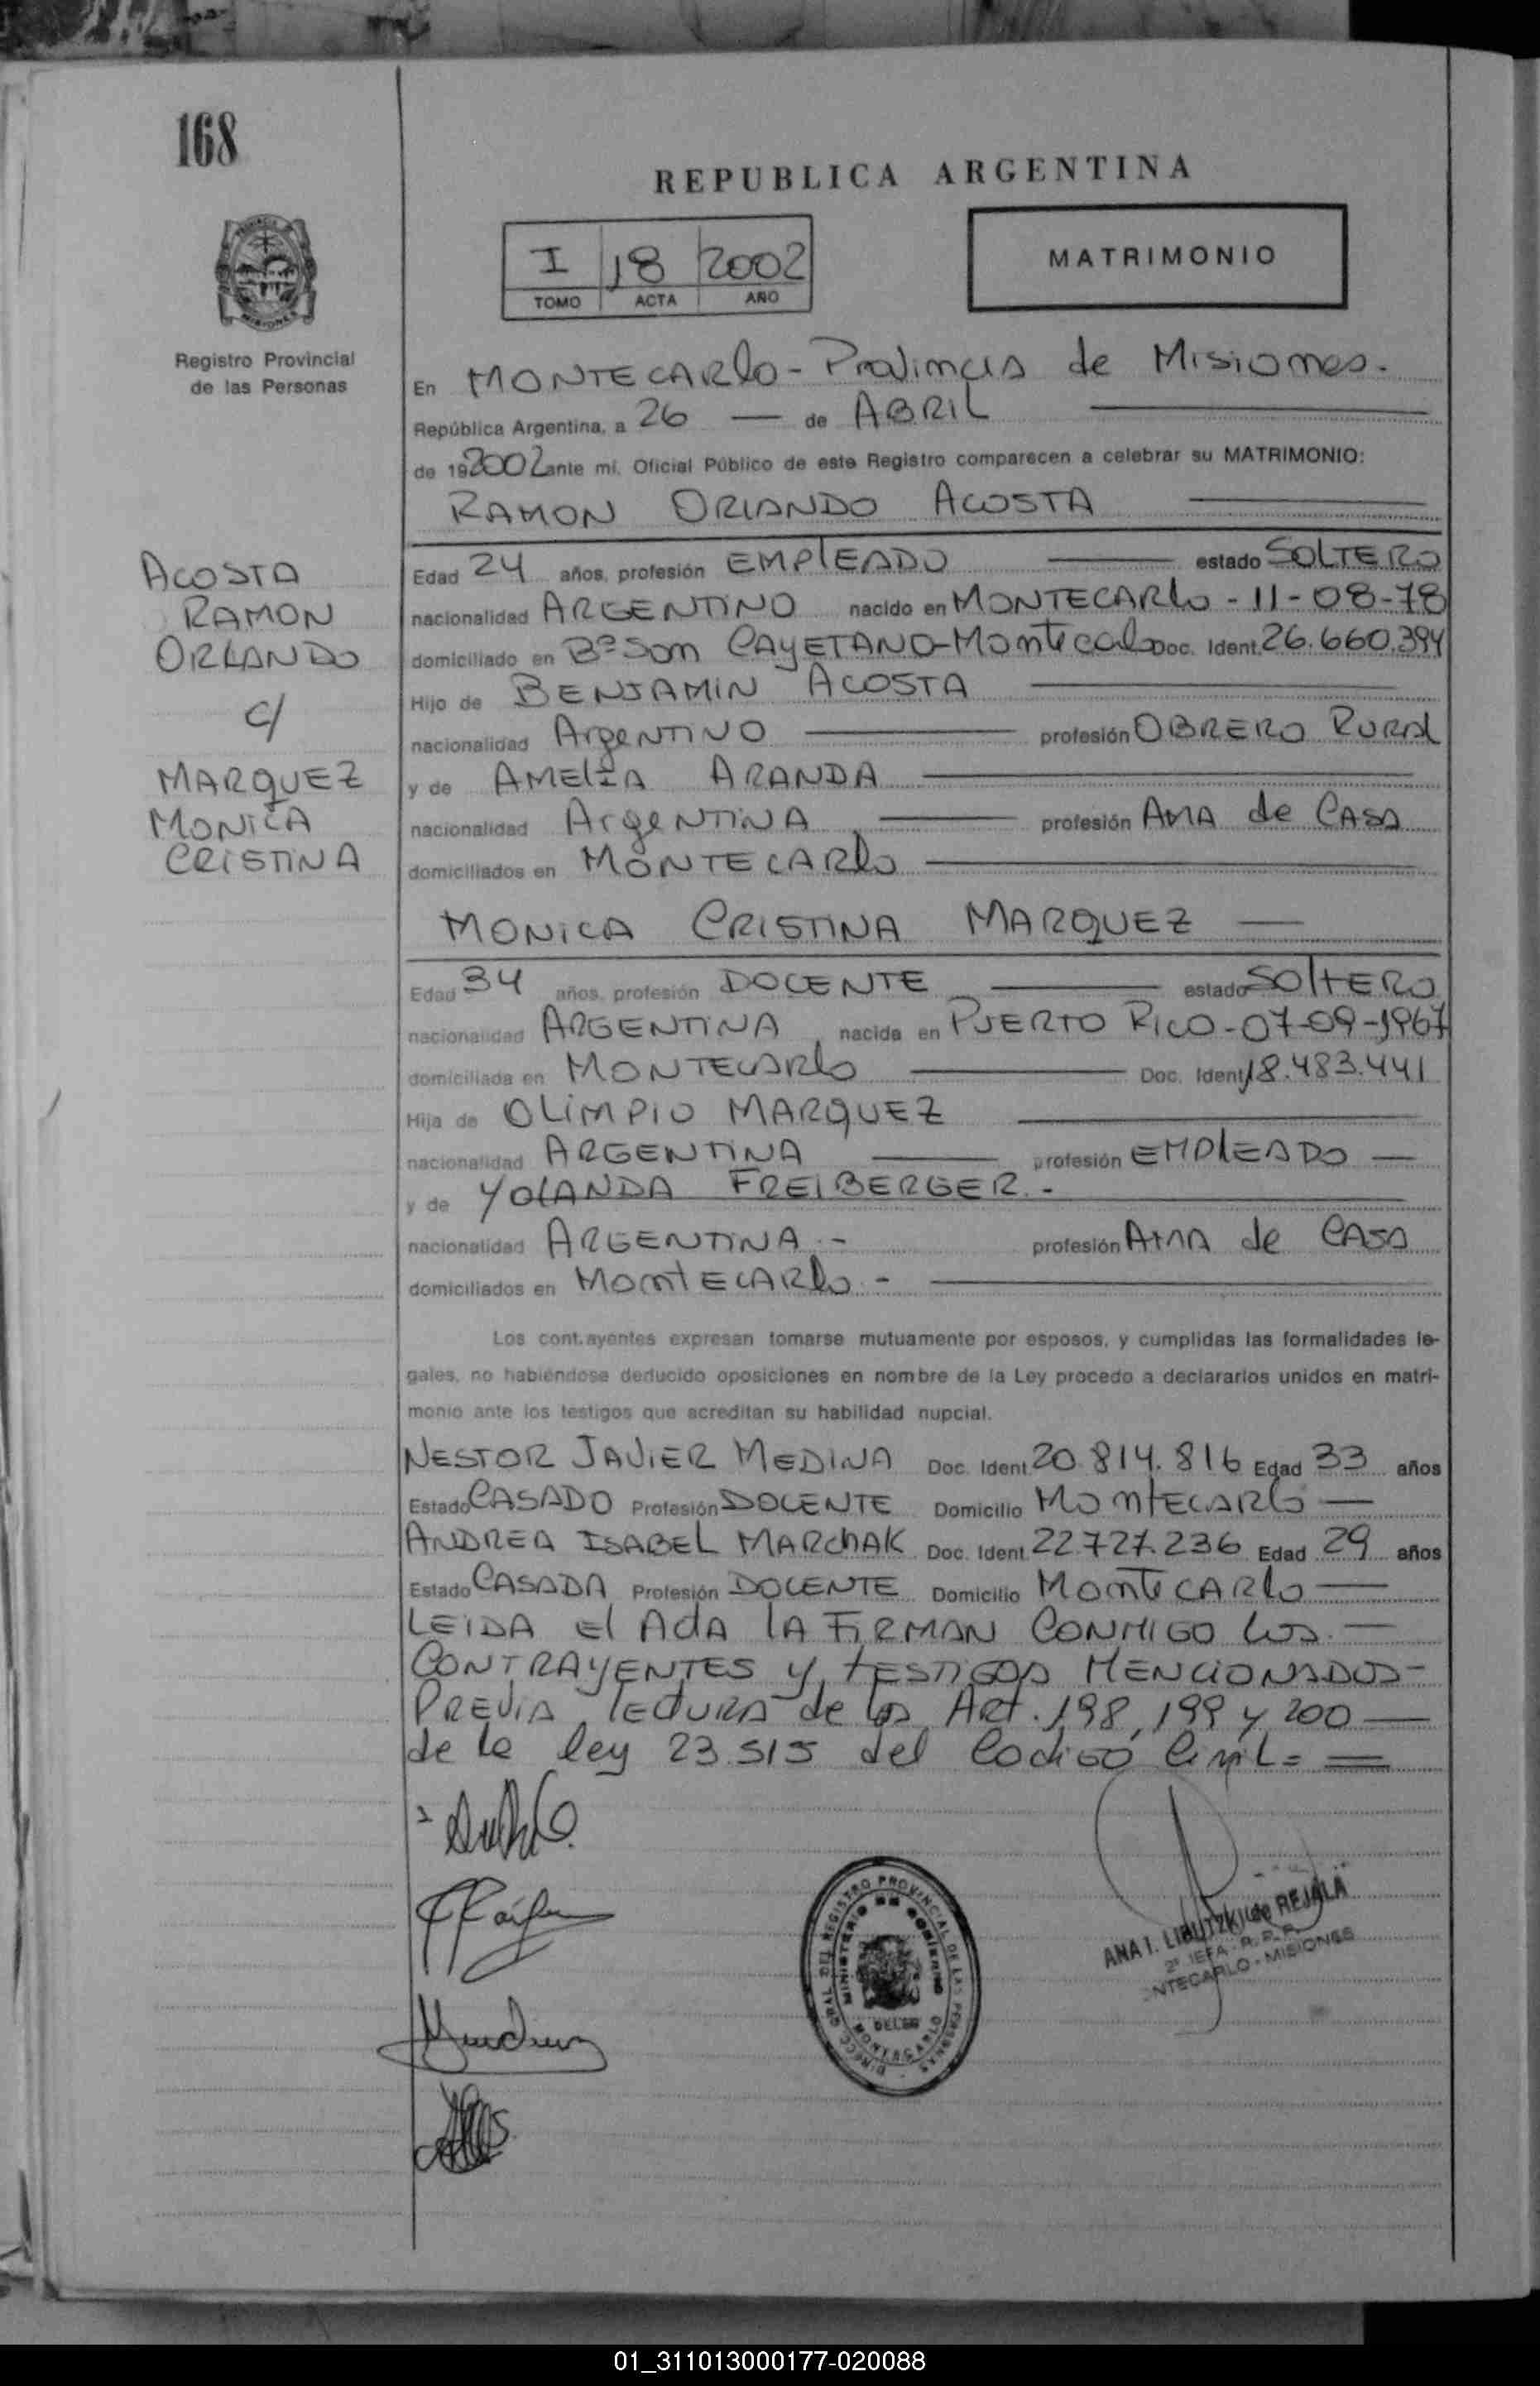 168
REPUBLICA ARGENTINA
I 18 2002
TOMO ACTA AÑO
MATRIMONIO
PROVINCIA DE
MISIONES
Registro Provincial
de las Personas
En MONTECARlo - Provincia de Misiones.-
República Argentina, a 26 — de ABRIL
de 192002 ante mí, Oficial Público de este Registro comparecen a celebrar su MATRIMONIO:
RAMON ORLANDO ACOSTA
ACOSTA
RAMON
ORLANDO
c/
MARQUEZ
MONICA
CRISTINA
Edad 24 años, profesión EMPlEADO estado SOLTERO
nacionalidad ARGENTINO nacido en MONTECARlo - 11-08-78
domiciliado en Bº San CAYETANO-Montecarlo Doc. Ident. 26.660.394
Hijo de BENJAMIN ACOSTA
nacionalidad ArgeNTINO profesión OBRERO RURAL
y de AMELIA ARANDA
nacionalidad ArgeNTINA profesión AMA de CASA
domiciliados en MONTECARlo
MONICA CRISTINA MARQUEZ —
Edad 34 años, profesión DOCENTE estado SOltERO
nacionalidad ARGENTINA nacida en PUERTO RICO-07-09-1967
domiciliada en MONTECARlo Doc. Ident. 18.483.441
Hija de OLIMPIO MARQUEZ
nacionalidad ARGENTINA profesión EMPlEADO —
y de YOLANDA FREIBERGER.-
nacionalidad ARGENTINA.- profesión AMA de CASA
domiciliados en MontECARlo.-
Los contrayentes expresan tomarse mutuamente por esposos, y cumplidas las formalidades le-
gales, no habiéndose deducido oposiciones en nombre de la Ley procedo a declararlos unidos en matri-
monio ante los testigos que acreditan su habilidad nupcial.
NESTOR JAVIER MEDINA Doc. Ident. 20.814.816 Edad 33 años
Estado CASADO Profesión DOCENTE Domicilio MontECARlo —
ANDREA ISABEL MARCHAK Doc. Ident. 22.727.236 Edad 29 años
Estado CASADA Profesión DOCENTE Domicilio MonteCARlo —
LEIDA El ActA lA FIRMAN CONMIGO los —
CONTRAYENTES y tESTIGOS MENCIONADOS-
PREVIA lECtURA de los Art. 198, 199 y 200 —
de la ley 23.515 del Codigo Civil= =
DIRECC. GRAL DEL REGISTRO PROVINCIAL DE LAS PERSONAS
MINISTERIO DE GOBIERNO
MONTECARLO
ANA I. LIBUTZKI de REJALA
2ª JEFA - R. P. P.
NTECARLO - MISIONES
01_311013000177-020088